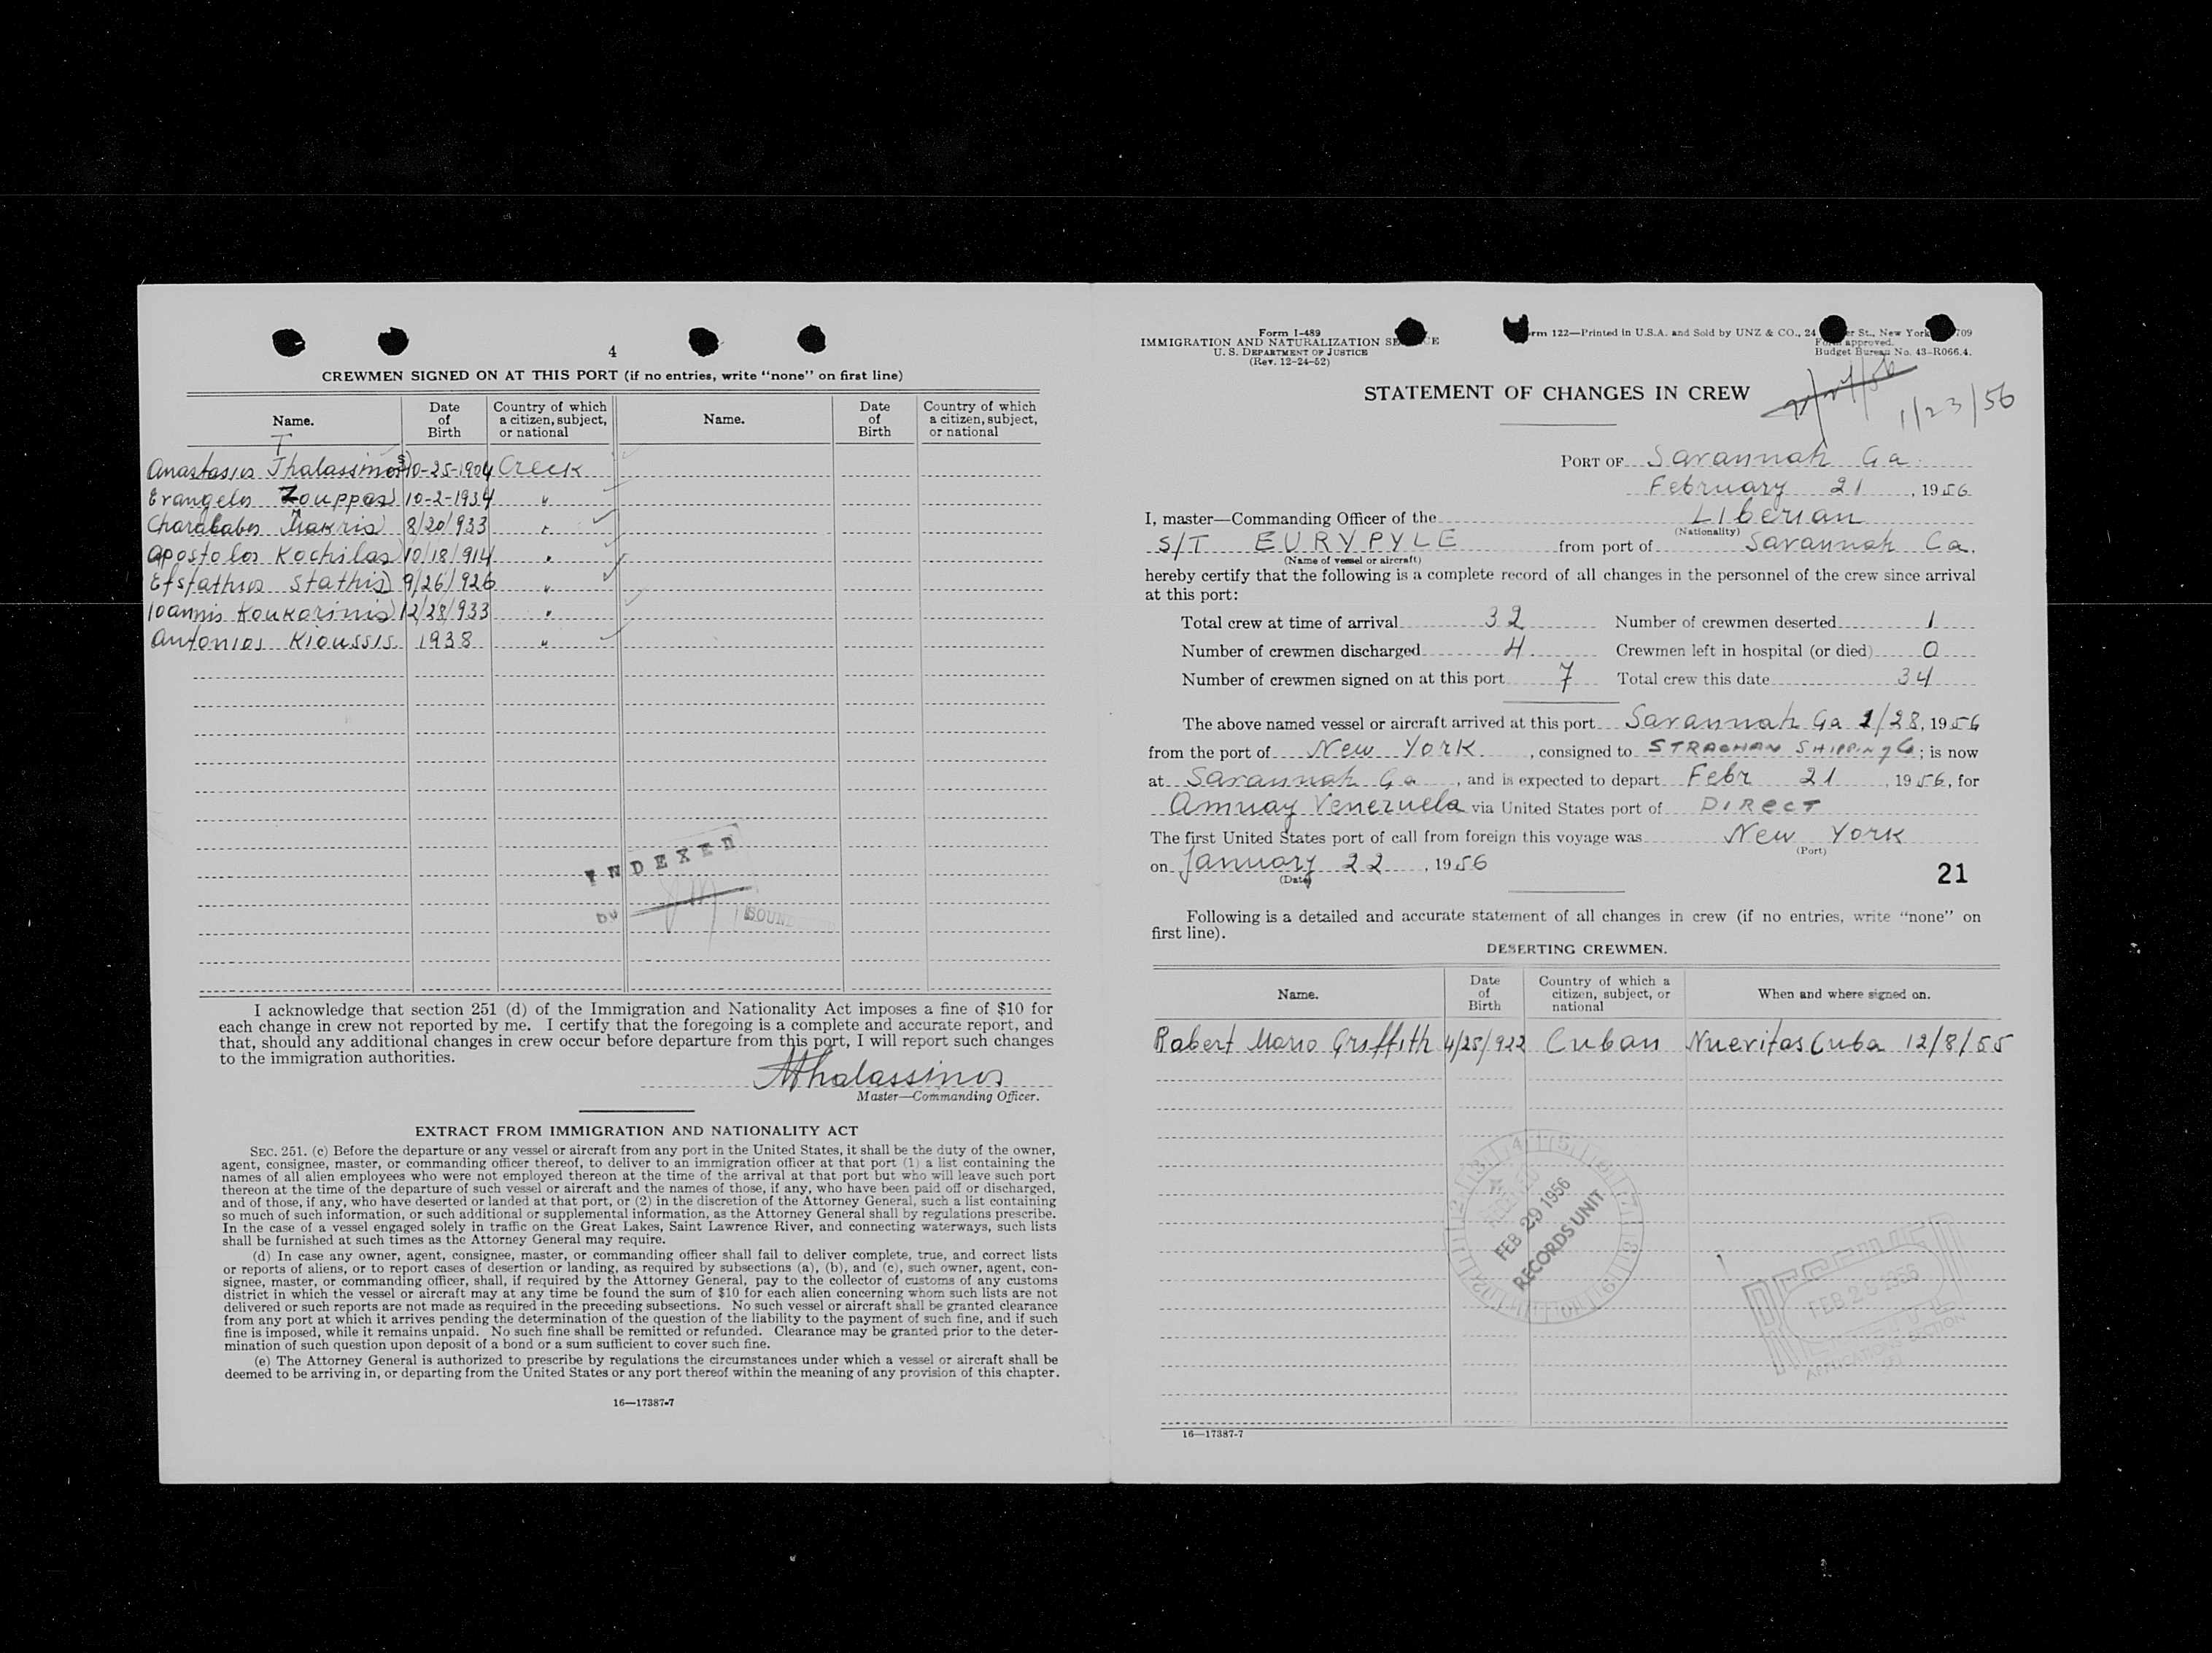 4
CREWMEN SIGNED ON AT THIS PORT (if no entries, write "none" on first line)
Name. Date of Birth Country of which a citizen, subject, or national Name. Date of Birth Country of which a citizen, subject, or national
T
Anastasios Thalassinos 10-25-1904 Greek
Evangelos Zouppas 10-2-1934 "
Charalabos Makris 8/20/933 "
Apostolos Kochilas 10/18/914 "
Efstathios Stathis 9/26/926 "
Ioannis Koukorinis 12/28/933 "
Antonios Kioussis 1938 "
INDEXED
by
I acknowledge that section 251 (d) of the Immigration and Nationality Act imposes a fine of $10 for
each change in crew not reported by me. I certify that the foregoing is a complete and accurate report, and
that, should any additional changes in crew occur before departure from this port, I will report such changes
to the immigration authorities.
AThalassinos
Master—Commanding Officer.
EXTRACT FROM IMMIGRATION AND NATIONALITY ACT
SEC. 251. (c) Before the departure or any vessel or aircraft from any port in the United States, it shall be the duty of the owner,
agent, consignee, master, or commanding officer thereof, to deliver to an immigration officer at that port (1) a list containing the
names of all alien employees who were not employed thereon at the time of the arrival at that port but who will leave such port
thereon at the time of the departure of such vessel or aircraft and the names of those, if any, who have been paid off or discharged,
and of those, if any, who have deserted or landed at that port, or (2) in the discretion of the Attorney General, such a list containing
so much of such information, or such additional or supplemental information, as the Attorney General shall by regulations prescribe.
In the case of a vessel engaged solely in traffic on the Great Lakes, Saint Lawrence River, and connecting waterways, such lists
shall be furnished at such times as the Attorney General may require.
(d) In case any owner, agent, consignee, master, or commanding officer shall fail to deliver complete, true, and correct lists
or reports of aliens, or to report cases of desertion or landing, as required by subsections (a), (b), and (c), such owner, agent, con-
signee, master, or commanding officer, shall, if required by the Attorney General, pay to the collector of customs of any customs
district in which the vessel or aircraft may at any time be found the sum of $10 for each alien concerning whom such lists are not
delivered or such reports are not made as required in the preceding subsections. No such vessel or aircraft shall be granted clearance
from any port at which it arrives pending the determination of the question of the liability to the payment of such fine, and if such
fine is imposed, while it remains unpaid. No such fine shall be remitted or refunded. Clearance may be granted prior to the deter-
mination of such question upon deposit of a bond or a sum sufficient to cover such fine.
(e) The Attorney General is authorized to prescribe by regulations the circumstances under which a vessel or aircraft shall be
deemed to be arriving in, or departing from the United States or any port thereof within the meaning of any provision of this chapter.
16—17387-7
Form I-489
IMMIGRATION AND NATURALIZATION SE CE
U. S. DEPARTMENT OF JUSTICE
(Rev. 12-24-52)
rm 122—Printed in U.S.A. and Sold by UNZ & CO., 24 er St., New York 709
Form approved.
Budget Bureau No. 43-R066.4.
STATEMENT OF CHANGES IN CREW
1/23/56
PORT OF Savannah Ga.
February 21, 1956
I, master—Commanding Officer of the Liberian
(Nationality)
S/T EURYPYLE from port of Savannah Ga.
(Name of vessel or aircraft)
hereby certify that the following is a complete record of all changes in the personnel of the crew since arrival
at this port:
Total crew at time of arrival 32 Number of crewmen deserted 1
Number of crewmen discharged 4 Crewmen left in hospital (or died) 0
Number of crewmen signed on at this port 7 Total crew this date 34
The above named vessel or aircraft arrived at this port Savannah Ga 1/28, 1956
from the port of New York, consigned to STRACHAN SHIPPING Co; is now
at Savannah Ga, and is expected to depart Febr 21, 1956, for
Amuay Venezuela via United States port of DIRECT
The first United States port of call from foreign this voyage was New York
(Port)
on January 22, 1956
(Date)
21
Following is a detailed and accurate statement of all changes in crew (if no entries, write "none" on
first line).
DESERTING CREWMEN.
Name. Date of Birth Country of which a citizen, subject, or national When and where signed on.
Robert Mario Griffith 4/25/922 Cuban Nuevitas Cuba 12/8/55
FEB 29 1956
RECORDS UNIT
RECEIVED
FEB 26 1956
APPLICATIONS SECTION
16—17387-7